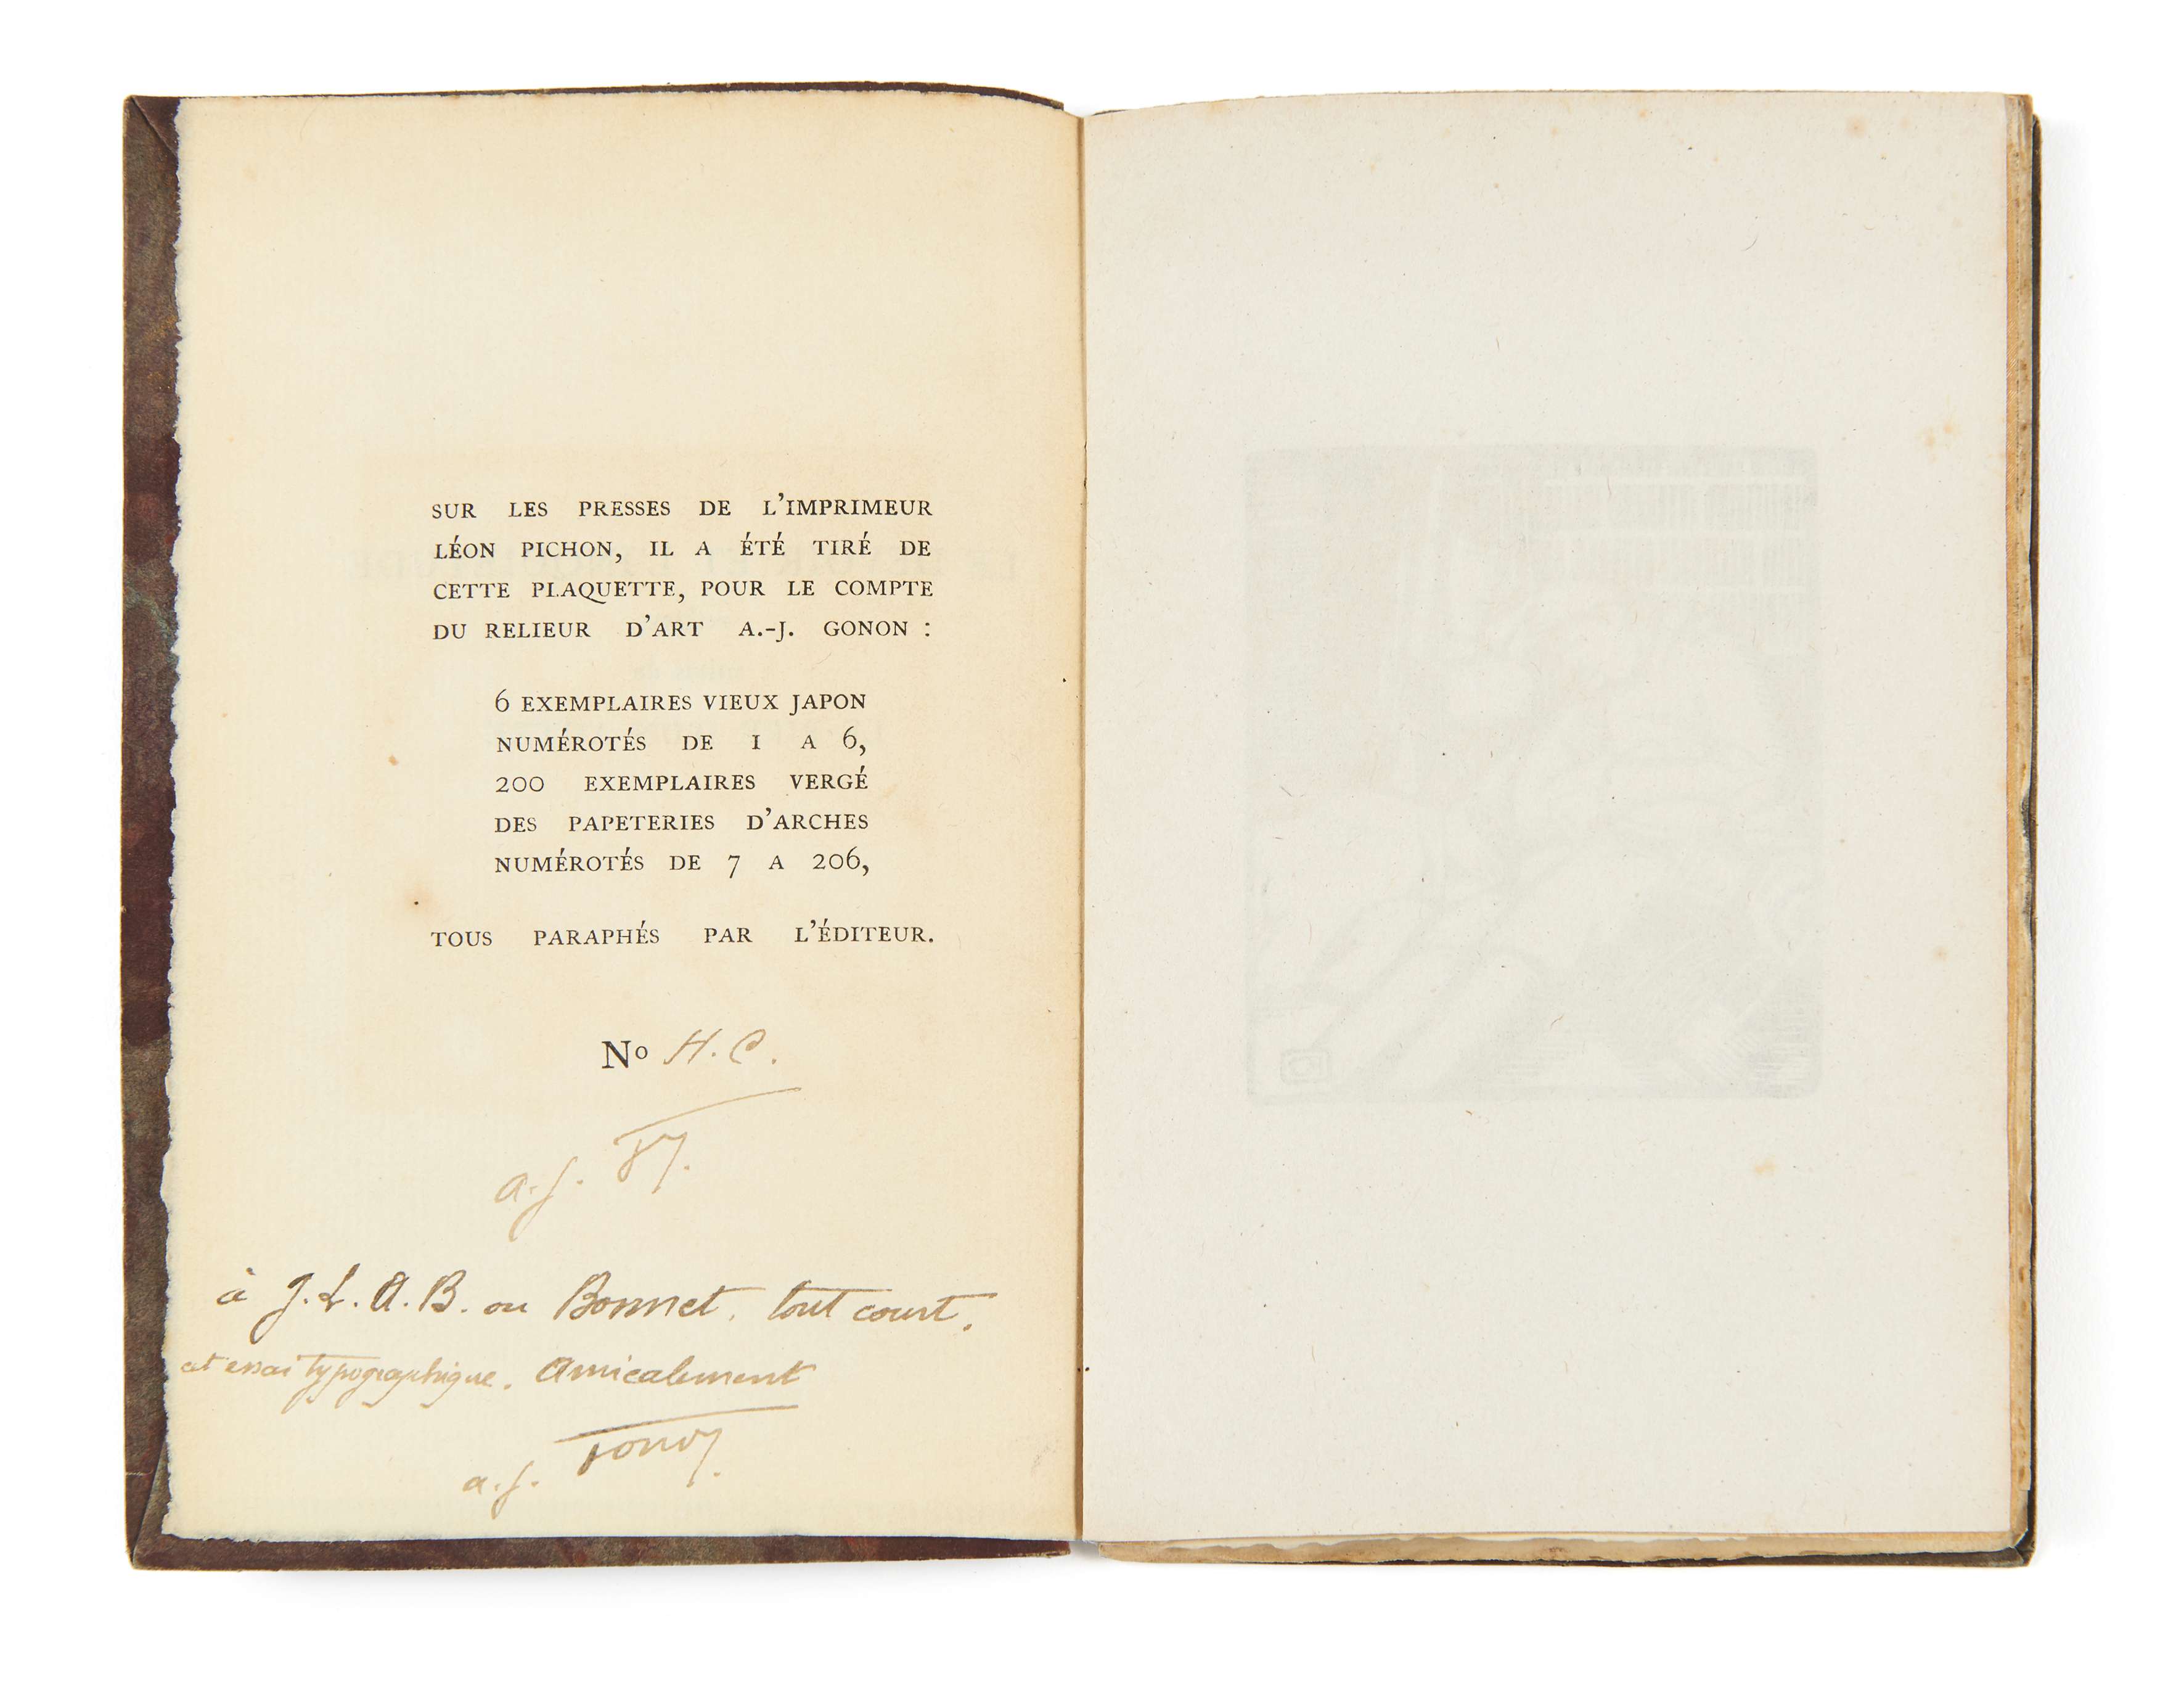 SUR LES PRESSES DE L'IMPRIMEUR
LÉON PICHON, IL A ÉTÉ TIRÉ DE
CETTE PLAQUETTE, POUR LE COMPTE
DU RELIEUR D'ART A.-J. GONON :
6 EXEMPLAIRES VIEUX JAPON
NUMÉROTÉS DE 1 A 6,
200 EXEMPLAIRES VERGÉ
DES PAPETERIES D'ARCHES
NUMÉROTÉS DE 7 A 206,
TOUS PARAPHÉS PAR L'ÉDITEUR.
No H. C.
a. j.
à J. L. A. B. ou Bonnet. tout court.
cet essai typographique. Amicalement
a. j. Gonon